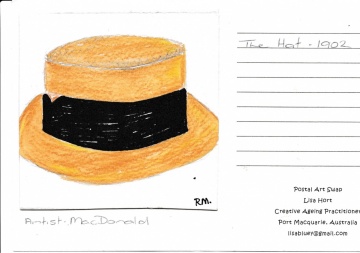 The Hat - 1902
RM.
Artist - MacDonald
Postal Art Swap
Lisa Hort
Creative Ageing Practitioner
Port Macquarie, Australia
lisabluer@gmail.com